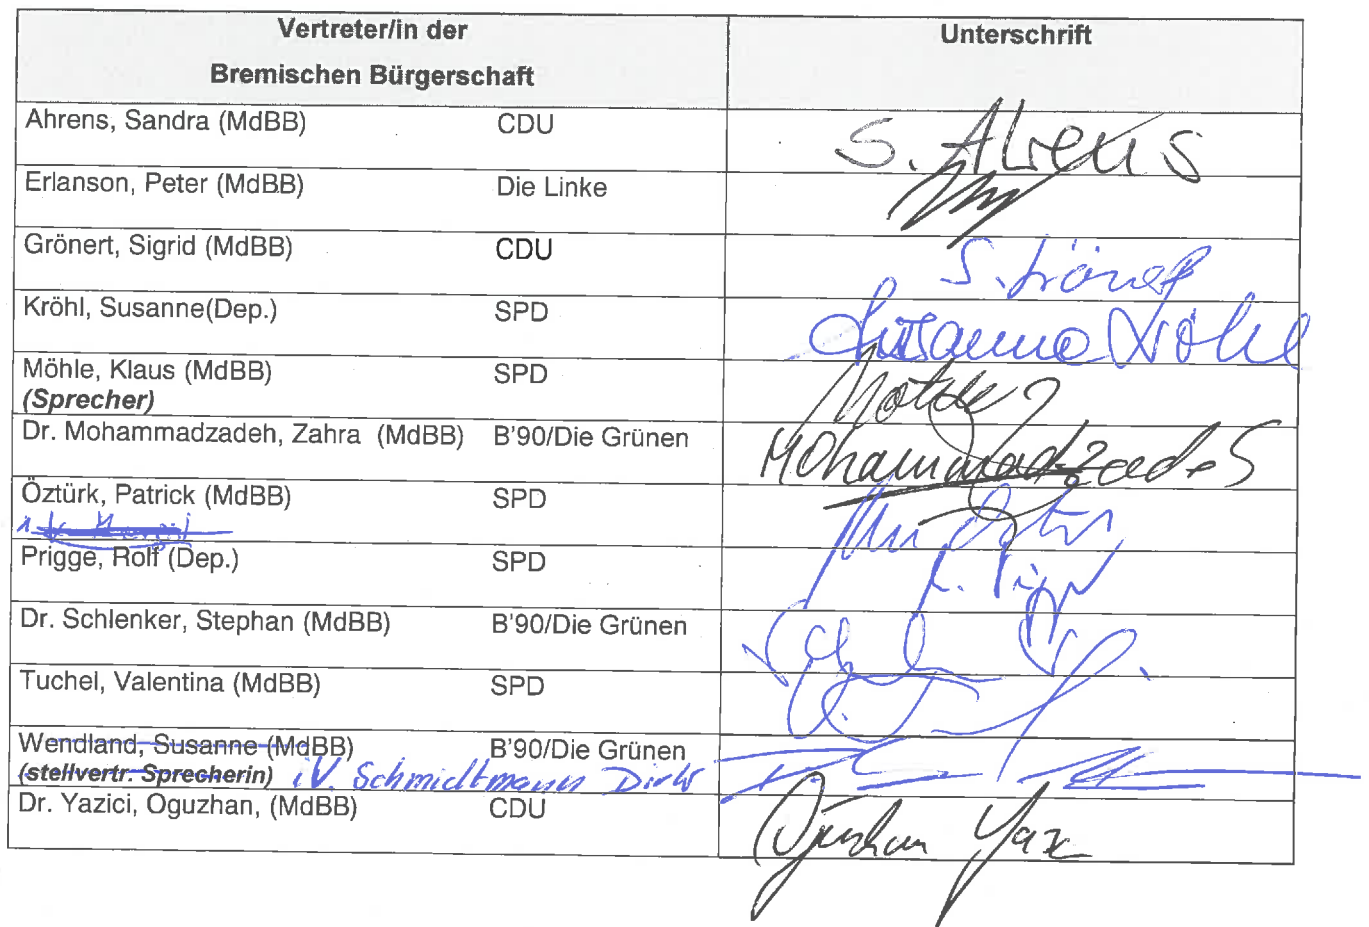 Vertreter/in der Unterschrift
Bremischen Bürgerschaft
Ahrens, Sandra (MdBB) CDU S. Ahrens
Erlanson, Peter (MdBB) Die Linke
Grönert, Sigrid (MdBB) CDU S. Grönert
Kröhl, Susanne(Dep.) SPD Susanne Kröhl
Möhle, Klaus (MdBB) SPD Möhle
(Sprecher)
Dr. Mohammadzadeh, Zahra (MdBB) B'90/Die Grünen Mohammadzadeh
Öztürk, Patrick (MdBB) SPD
Prigge, Rolf (Dep.) SPD
Dr. Schlenker, Stephan (MdBB) B'90/Die Grünen
Tuchel, Valentina (MdBB) SPD
Wendland, Susanne (MdBB) B'90/Die Grünen
(stellvertr. Sprecherin) i.V. Schmidtmann Dirk
Dr. Yazici, Oguzhan, (MdBB) CDU Oguzhan Yaz